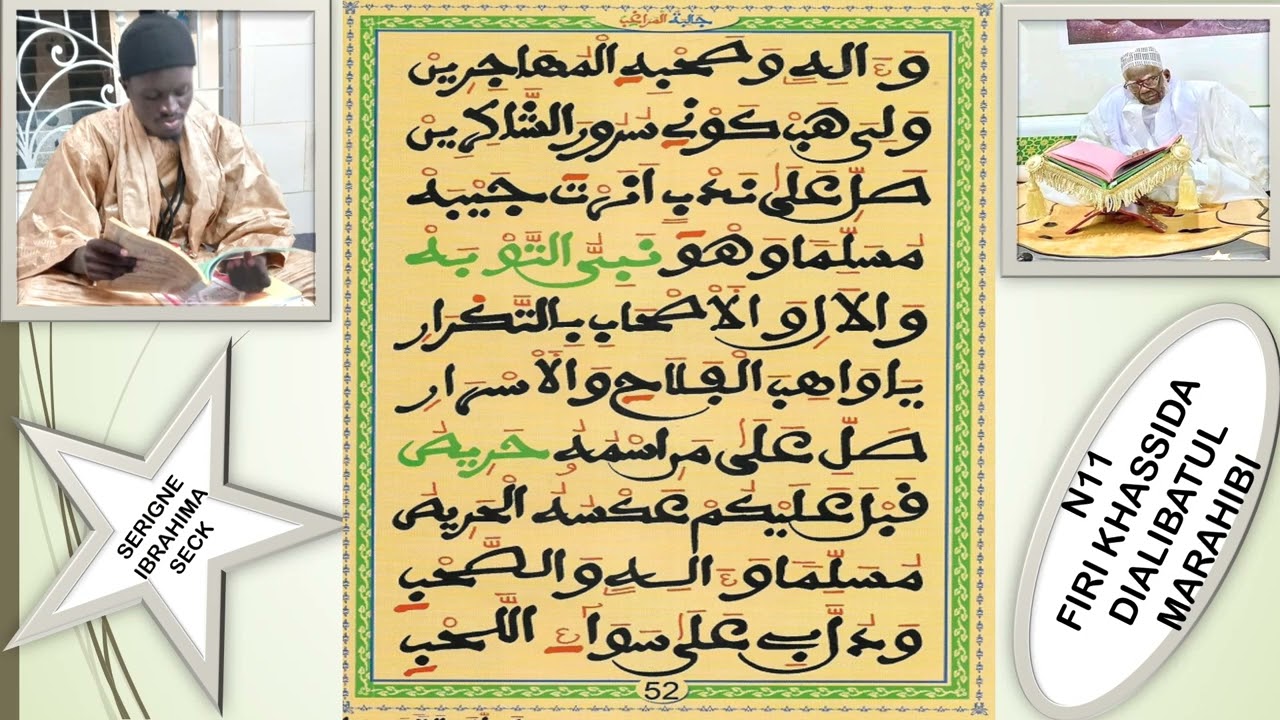 جالبة المراغب
وَءَالِهِ وَصَحْبِهِ الْمُهَاجِرِينْ
وَلِىَ هَبْ كَوْنِي سُرُورَ الشَّاكِرِينْ
صَلِّ عَلَىٰ
جَيْبَهْ
مُسَلِّمًا وَهْوَ نَبِيُّ التَّوْبَهْ
وَالْآلِ وَالْأَصْحَابِ بِالتَّكْرَارِ
يَا وَاهِبَ الْفَلَاحِ وَالْأَسْرَارِ
صَلِّ عَلَى مَنِ اسْمُهُ حَرِيصُ
قَبْلَ عَلَيْكُمْ عَكْسُهُ الْحَرِيصُ
مُسَلِّمًا وَءَالِهِ وَالصَّحْبِ
عَلَى سَوَآءِ اللَّحْبِ
52
SERIGNE
IBRAHIMA
SECK
N11
FIRI KHASSIDA
DIALIBATUL
MARAHIBI